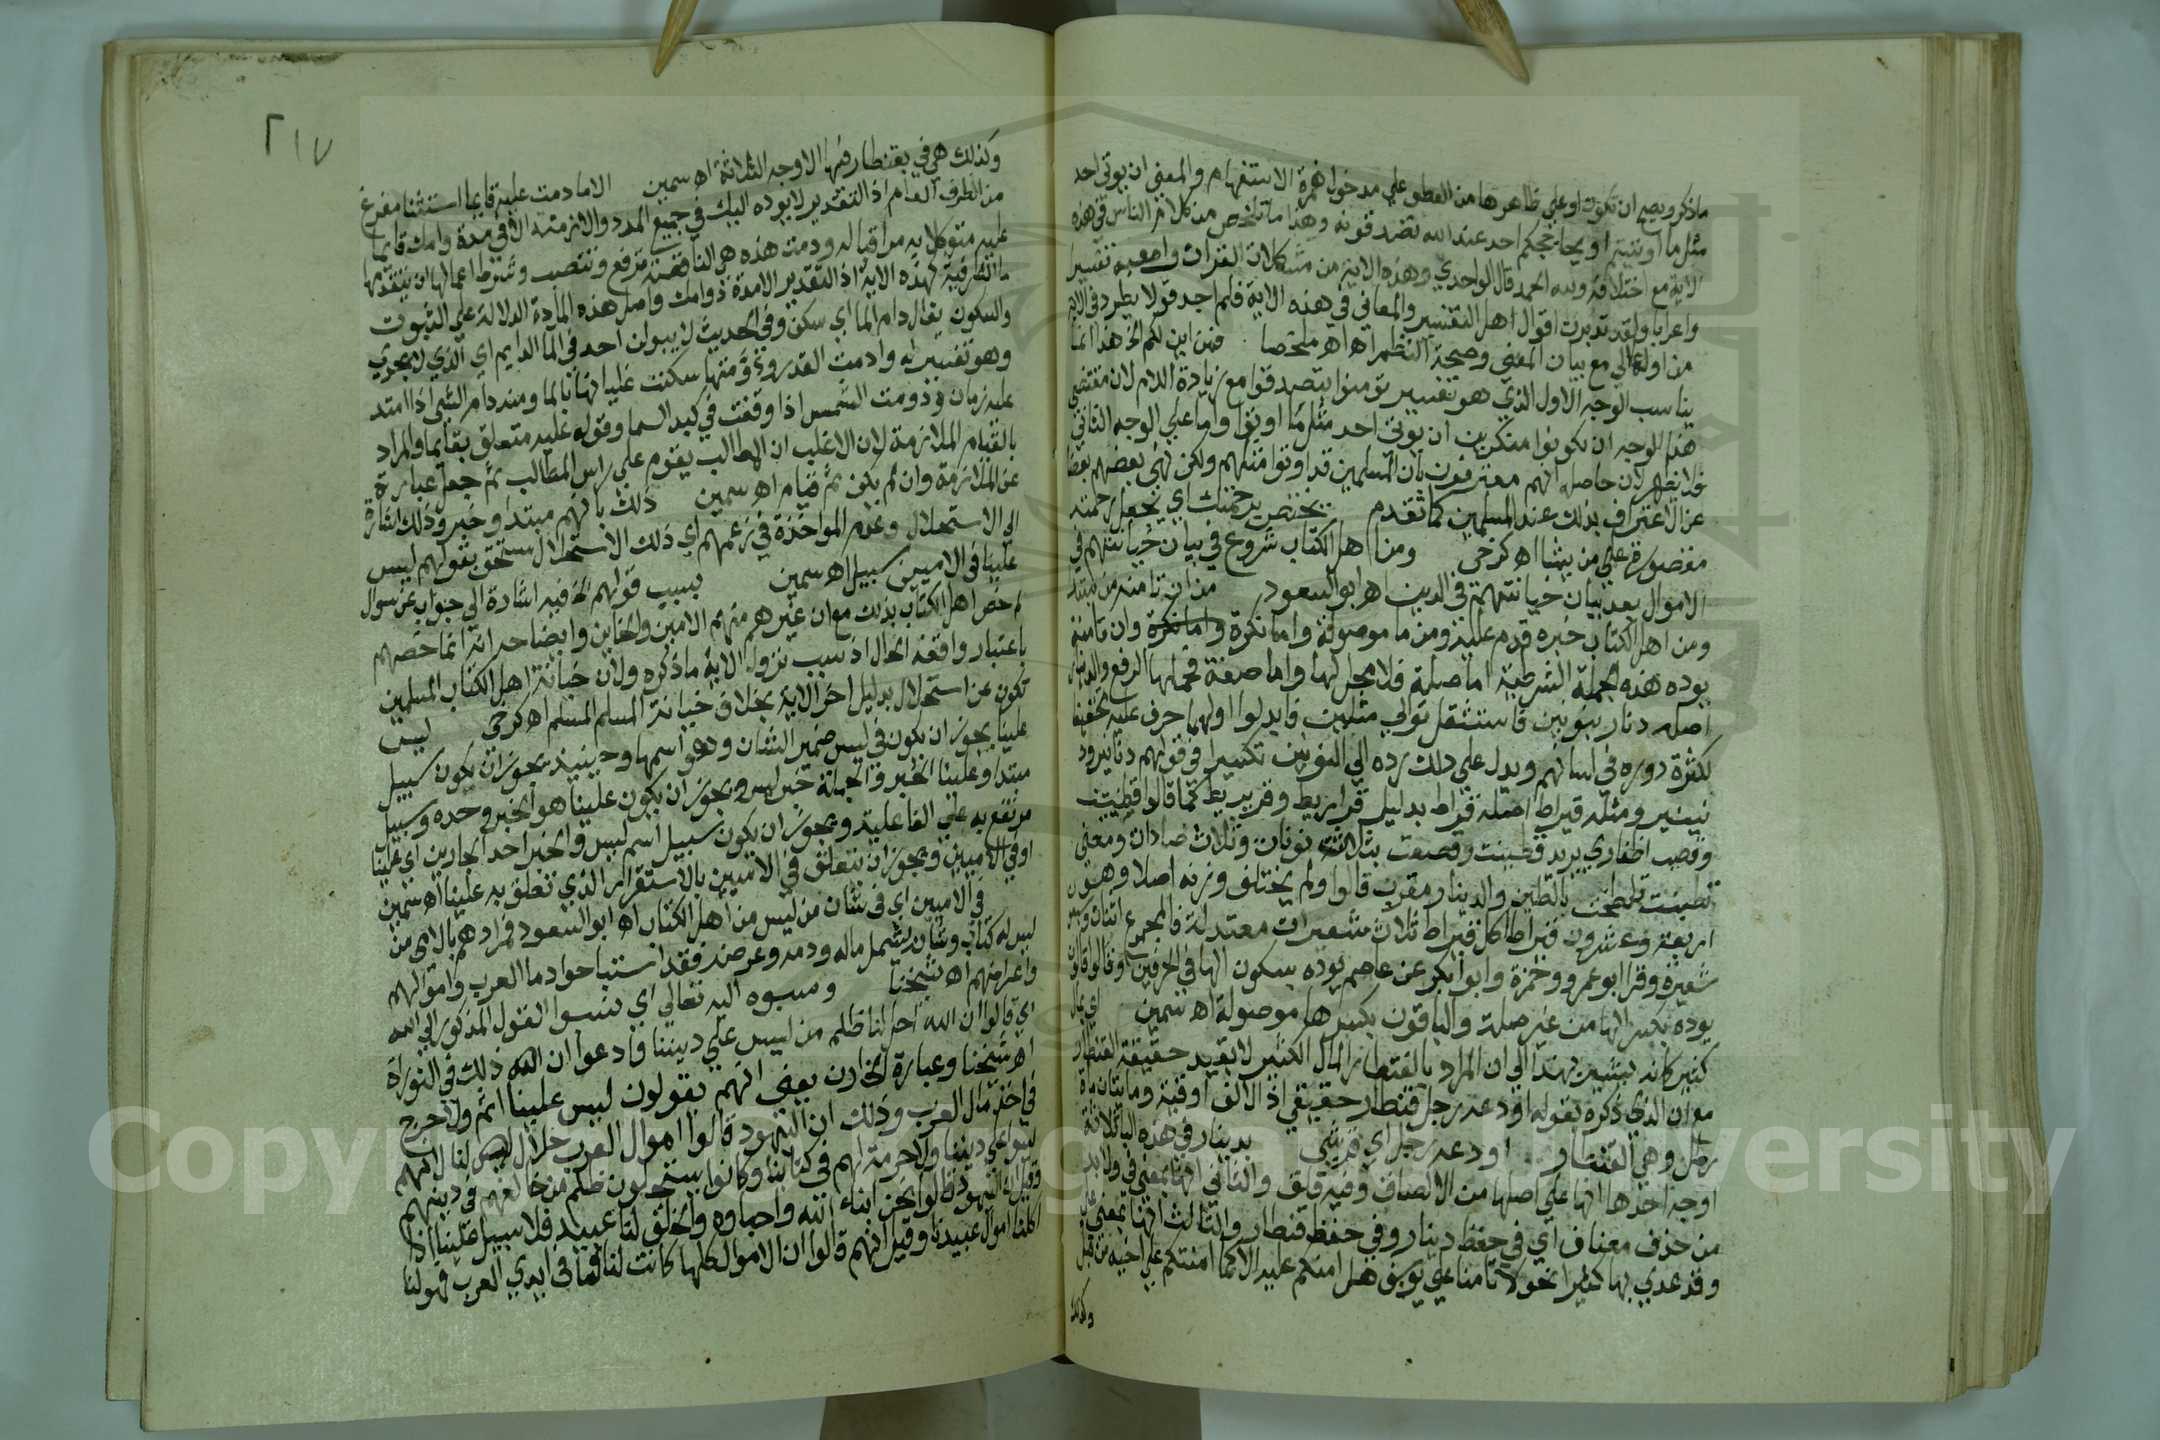 ما ذكر ويصح ان تكون او على ظاهرها من العطف على مدخول همزة الاستفهام والمعنى ان يوتى احد
مثل ما اوتيتم او يحاججكم احد عند الله تصدقونه وهذا ما تلخص من كلام الناس في هذه
الاية مع اختلافه ولله الحمد قال الواحدي وهذه الاية من مشكلات القران واصعبه تفسيرا
واعرابا ولقد تدبرت اقوال اهل التفسير والمعاني في هذه الاية فلم اجد قولا يطرد في الاية
من اولها الى مع بيان المعنى وصحة النظم اه اه ملخصا فمن اين لكم الخ هذا انما
يناسب الوجه الاول الذي هو تفسير تومنوا بتصدقوا مع زيادة اللام لان مقتضى
هذا الوجه ان يكونوا منكرين ان يوتى احد مثل ما اوتوا واما على الوجه الثاني
فلا يظهر لان حاصله انهم معترفون بان المسلمين قد اوتوا مثلهم ولكن نهى بعضهم بعضا
عن الاعتراف بذلك عند المسلمين كما تقدم يختص برحمته اي يجعل رحمته
مقصورة على من يشا اه كرخي ومن اهل الكتاب شروع في بيان خيانتهم في
الاموال بعد بيان خيانتهم في الدين اه ابو السعود من ان تامنه من مبتدا
ومن اهل الكتاب خبره قدم عليه ومن ما موصولة واما نكرة واما نكرة وان تامنه
يوده هذه الجملة الشرطية اما صلة فلا محل لها واما صفة فمحلها الرفع والدينار
اصله دنار بنونين فاستثقل توالي مثلين فابدلوا اولهما حرف علة تخفيفا
لكثرة دوره في لسانهم ويدل على ذلك رده الى النونين تكسيرا في قولهم دنانير ود
نينير ومثله قيراط اصله قراط بدليل قراريط وقريريط كما قالوا تظنيت
وقصيت اظفاري يريد تظننت وقصصت بثلاث نونات وثلاث صادات ومعنى
تظننت تلطخت بالطين والدينار معرب قالوا ولم يختلف وزنه اصلا وهو
اربعة وعشرون قيراطا كل قيراط ثلاث شعيرات معتدلة فالمجموع اثنان وسبعون
شعيرة وقرا ابو عمرو وحمزة وابو بكر عن عاصم يوده بسكون الها في الحرفين وقالوا قالون
يوده بكسر الها من غير صلة والباقون بكسرها موصولة اه سمين اي بمال
كثير كانه يشير بهذا الى ان المراد بالقنطار المال الكثير لا بقيد حقيقة القنطار
مع ان الذي ذكره بقوله اودعه رجل قنطار حقيقي اذ الالف اوقية ومايتان ماة
رطل وهي القنطار اودعه رجل اي قرشي بدينار في هذه البا ثلاثة
اوجه احدها انها على اصلها من الالصاق وفيه قلق والثاني انها بمعنى في ولا بد
من حذف مضاف اي في حفظ دينار وفي حفظ قنطار والثالث انها بمعنى على
وقد عدي بها كثيرا نحو لا تامنا على يوسف هل امنكم عليه الا كما امنتكم على اخيه من قبل
وكذلك
٢١٧
وكذلك هي في بقنطار فيها الاوجه الثلاثة اه سمين الا ما دمت عليه قايما استثنا مفرغ
من الظرف العام اذ التقدير لا يوده اليك في جميع المدد والازمنة الا في مدة دوامك قايما
عليه متوكلا به مراقبا له ودمت هذه هي الناقصة ترفع وتنصب وشرط اعمالها ان يتقدمها
ما الظرفية كهذه الاية اذ التقدير الا مدة دوامك واصل هذه المادة الدلالة على الثبوت
والسكون يقال دام الما اي سكن وفي الحديث لا يبولن احد في الما الدايم اي الذي لا يجري
وهو تفسير له وادمت القدر ودومتها سكنت غليانها بالما ومنه دام الشي اذا امتد
عليه زمان ودومت الشمس اذا وقفت في كبد السما وقوله عليه متعلق بقايما والمراد
بالقيام الملازمة لان الاغلب ان المطالب يقوم على راس المطالب ثم جعل عبارة
عن الملازمة وان لم يكن ثم قيام اه سمين ذلك بانهم مبتدا وخبر وذلك اشارة
الى الاستحلال وعدم المواخذة في زعمهم اي ذلك الاستحلال مستحق بقولهم ليس
علينا في الاميين سبيل اه سمين بسبب قولهم الخ فيه اشارة الى جواب عن سوال
لم خص اهل الكتاب بذلك مع ان غيرهم منهم الامين والخاين وايضاحه انه انما خصهم
باعتبار واقعة الحال اذ سبب نزول الاية ما ذكره ولان خيانة اهل الكتاب المسلمين
تكون عن استحلال بدليل اخر الاية بخلاف خيانة المسلم المسلم اه كرخي ليس
علينا يجوز ان يكون في ليس ضمير الشان وهو اسمها وحينئذ يجوز ان يكون سبيل
مبتدا وعلينا الخبر والجملة خبر ليس ويجوز ان يكون علينا هو الخبر وحده وسبيل
مرتفع به على الفاعلية ويجوز ان يكون سبيل اسم ليس والخبر احد الجارين اي علينا
او في الاميين ويجوز ان يتعلق في الاميين بالاستقرار الذي تعلق به علينا اه سمين
في الاميين اي في شان من ليس من اهل الكتاب اه ابو السعود فمرادهم بالامي من
ليس له كتاب وشانه يشمل ماله ودمه وعرضه فقد استباحوا دما العرب واموالهم
واعراضهم اه شيخنا ونسبوه اليه تعالى اي نسبوا القول المذكور الى الله
اي قالوا ان الله احل لنا ظلم من ليس على ديننا فادعوا ان الله ذلك في التوراة
اه شيخنا وعبارة الخازن يعني انهم يقولون ليس علينا اثم ولا حرج
في اخذ مال العرب وذلك ان اليهود قالوا اموال العرب حلال لنا لانهم
ليسوا على ديننا ولا حرمة لهم في كتابنا وكانوا يستحلون ظلم من خالفهم في دينهم
وقيل ان اليهود قالوا نحن ابناء الله واحباوه والخلق لنا عبيد فلا سبيل علينا اذا
اكلنا اموال عبيدنا وقيل انهم قالوا ان الاموال كلها كانت لنا فما في ايدي العرب فهو لنا